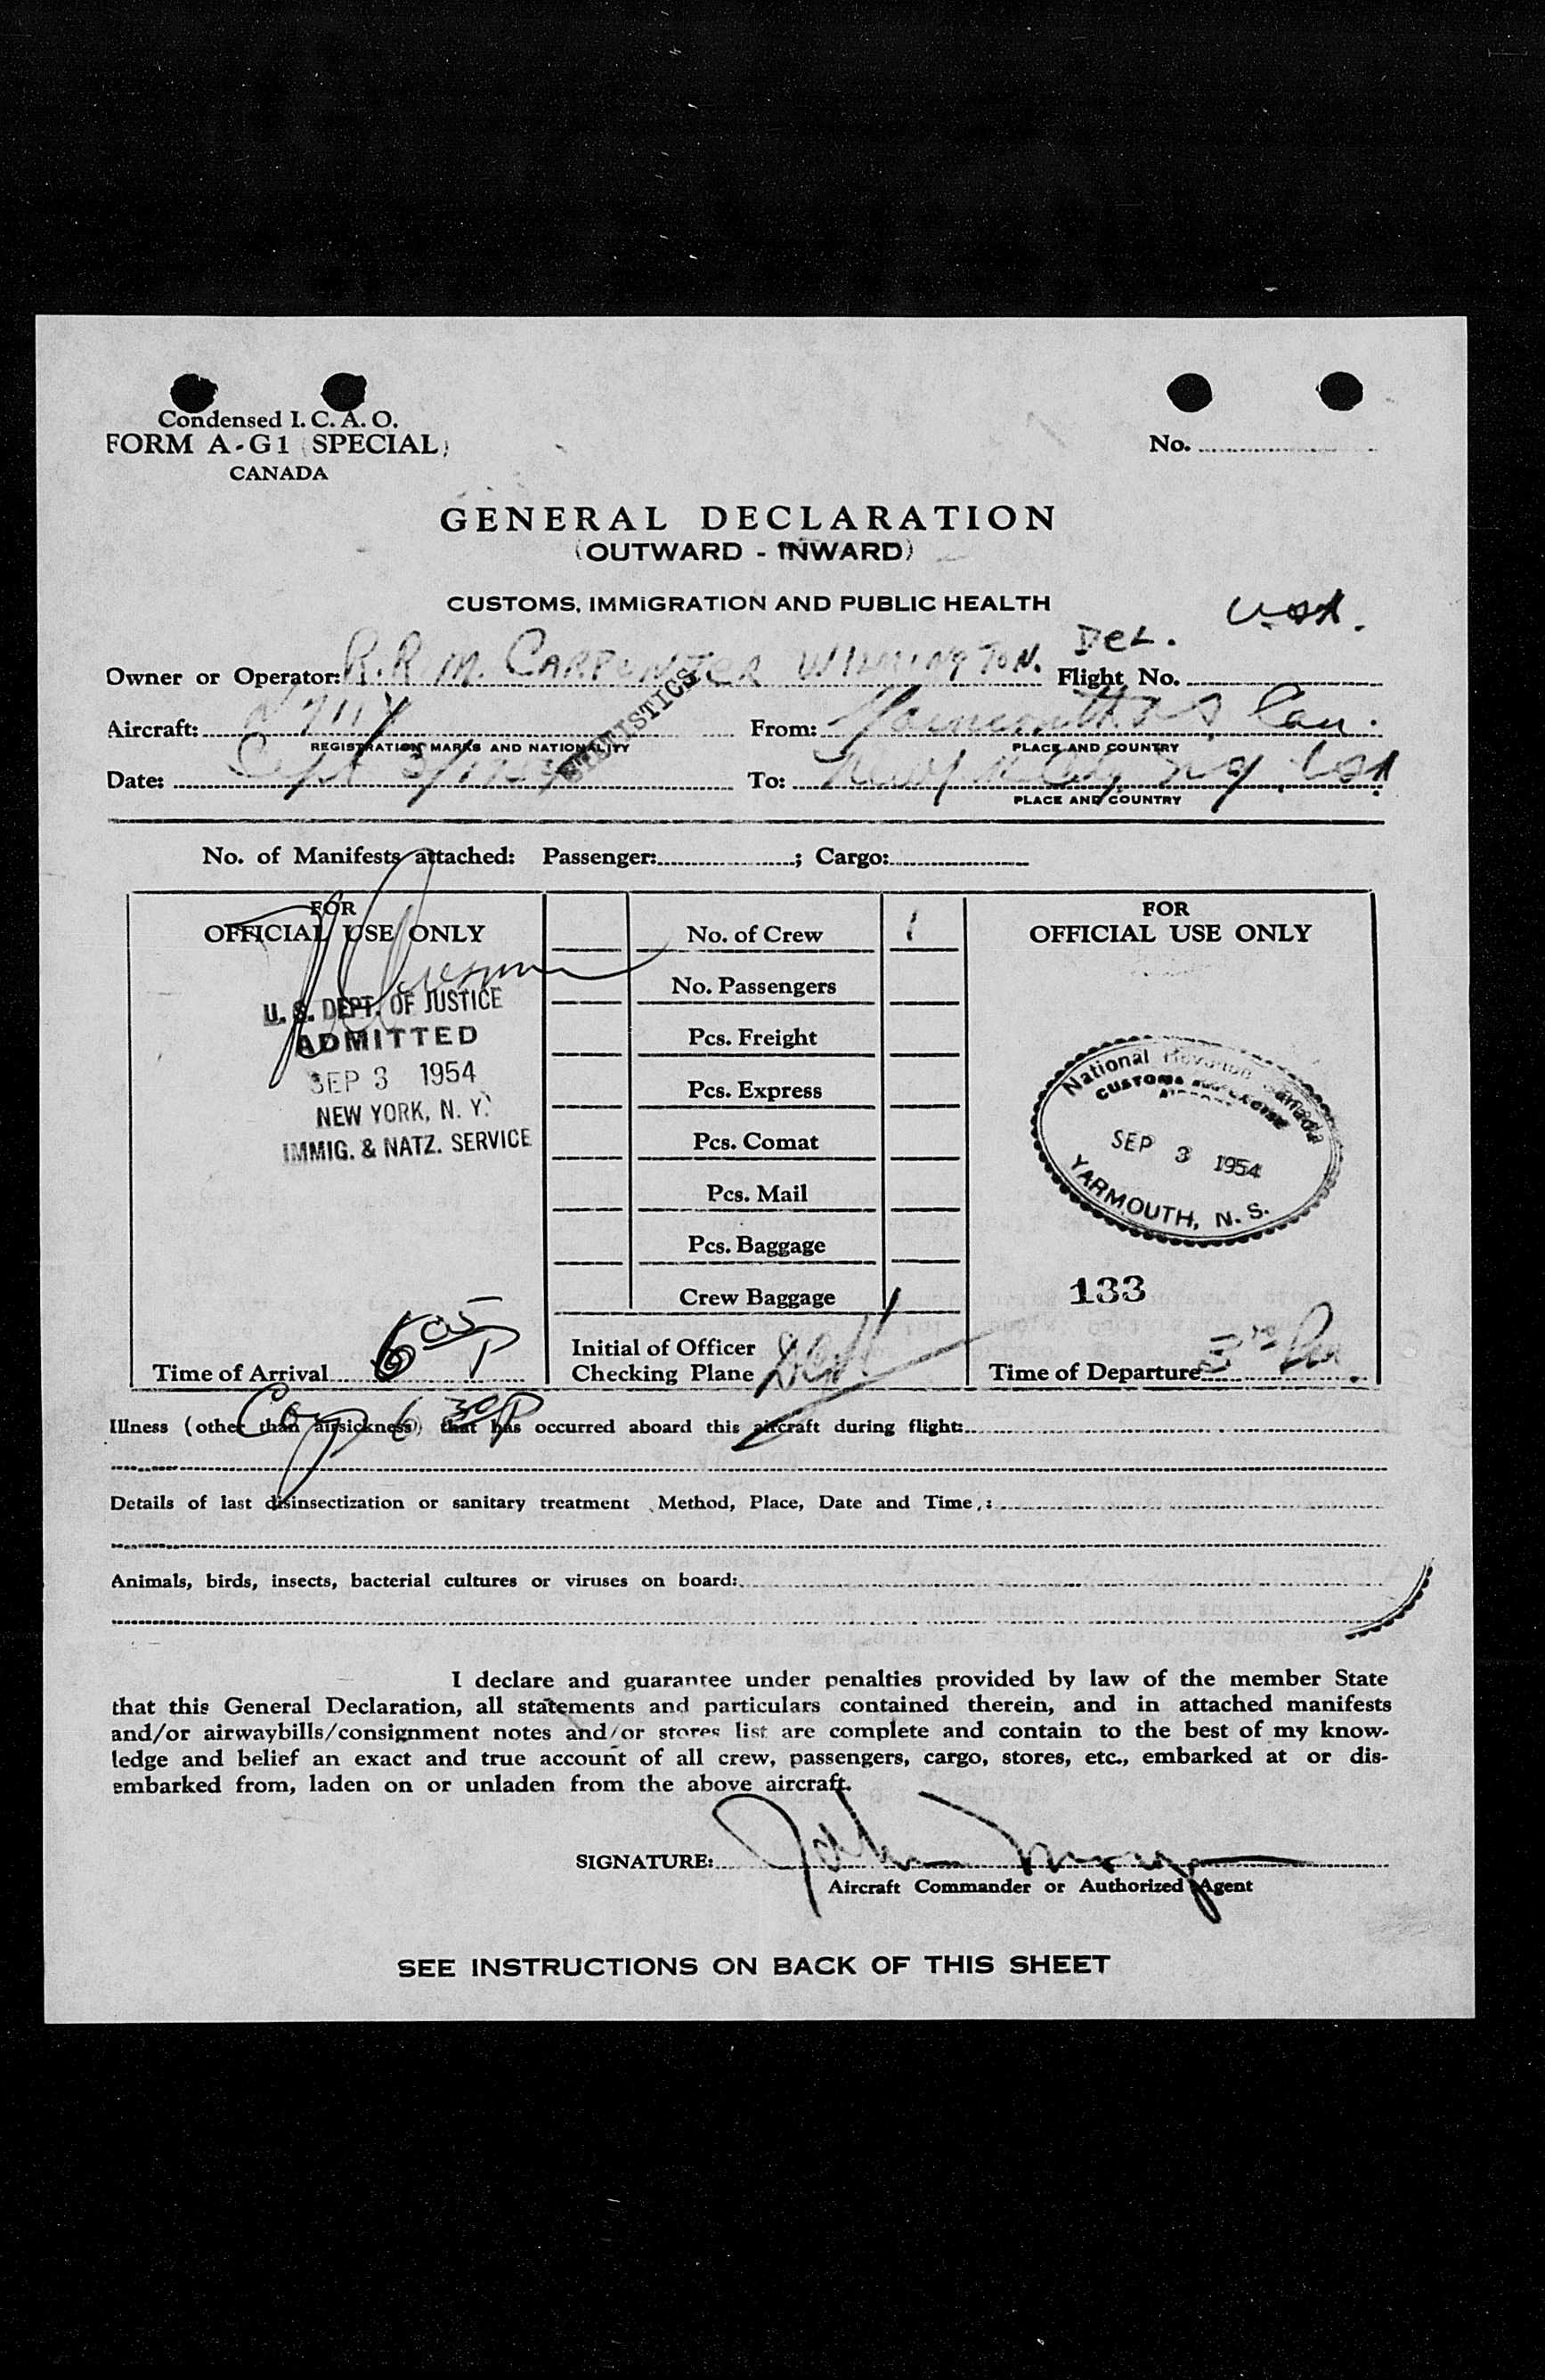 Condensed I. C. A. O.
FORM A-G1 (SPECIAL)
CANADA
No.
GENERAL DECLARATION
(OUTWARD - INWARD)
CUSTOMS, IMMIGRATION AND PUBLIC HEALTH
Owner or Operator: R.R.M. CARPENTER WILMINGTON. Del. U.S.A. Flight No.
STATISTICS
Aircraft: From: Yarmouth N S Can.
REGISTRATION MARKS AND NATIONALITY PLACE AND COUNTRY
Date: Sept 3/ To: New York City N Y. USA
PLACE AND COUNTRY
No. of Manifests attached: Passenger: ; Cargo:
FOR
OFFICIAL USE ONLY
U. S. DEPT. OF JUSTICE
ADMITTED
SEP 3 1954
NEW YORK, N. Y.
IMMIG. & NATZ. SERVICE
Time of Arrival 6 05 P
No. of Crew 1
No. Passengers
Pcs. Freight
Pcs. Express
Pcs. Comat
Pcs. Mail
Pcs. Baggage
Crew Baggage 1
Initial of Officer
Checking Plane
FOR
OFFICIAL USE ONLY
National Revenue Canada
CUSTOMS AND EXCISE
AIRPORT
SEP 3 1954
YARMOUTH, N. S.
133
Time of Departure
6 30 P
Illness (other than airsickness) that has occurred aboard this aircraft during flight:
Details of last disinsectization or sanitary treatment (Method, Place, Date and Time):
Animals, birds, insects, bacterial cultures or viruses on board:
I declare and guarantee under penalties provided by law of the member State
that this General Declaration, all statements and particulars contained therein, and in attached manifests
and/or airwaybills/consignment notes and/or stores list are complete and contain to the best of my know-
ledge and belief an exact and true account of all crew, passengers, cargo, stores, etc., embarked at or dis-
embarked from, laden on or unladen from the above aircraft.
SIGNATURE: John
Aircraft Commander or Authorized Agent
SEE INSTRUCTIONS ON BACK OF THIS SHEET